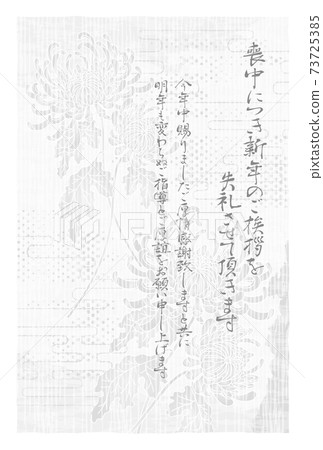 喪中につき新年のご挨拶を
失礼させて頂きます
今年中賜りましたご厚情感謝致しますと共に
明年も変わらぬご指導とご厚誼をお願い申し上げます
73725385